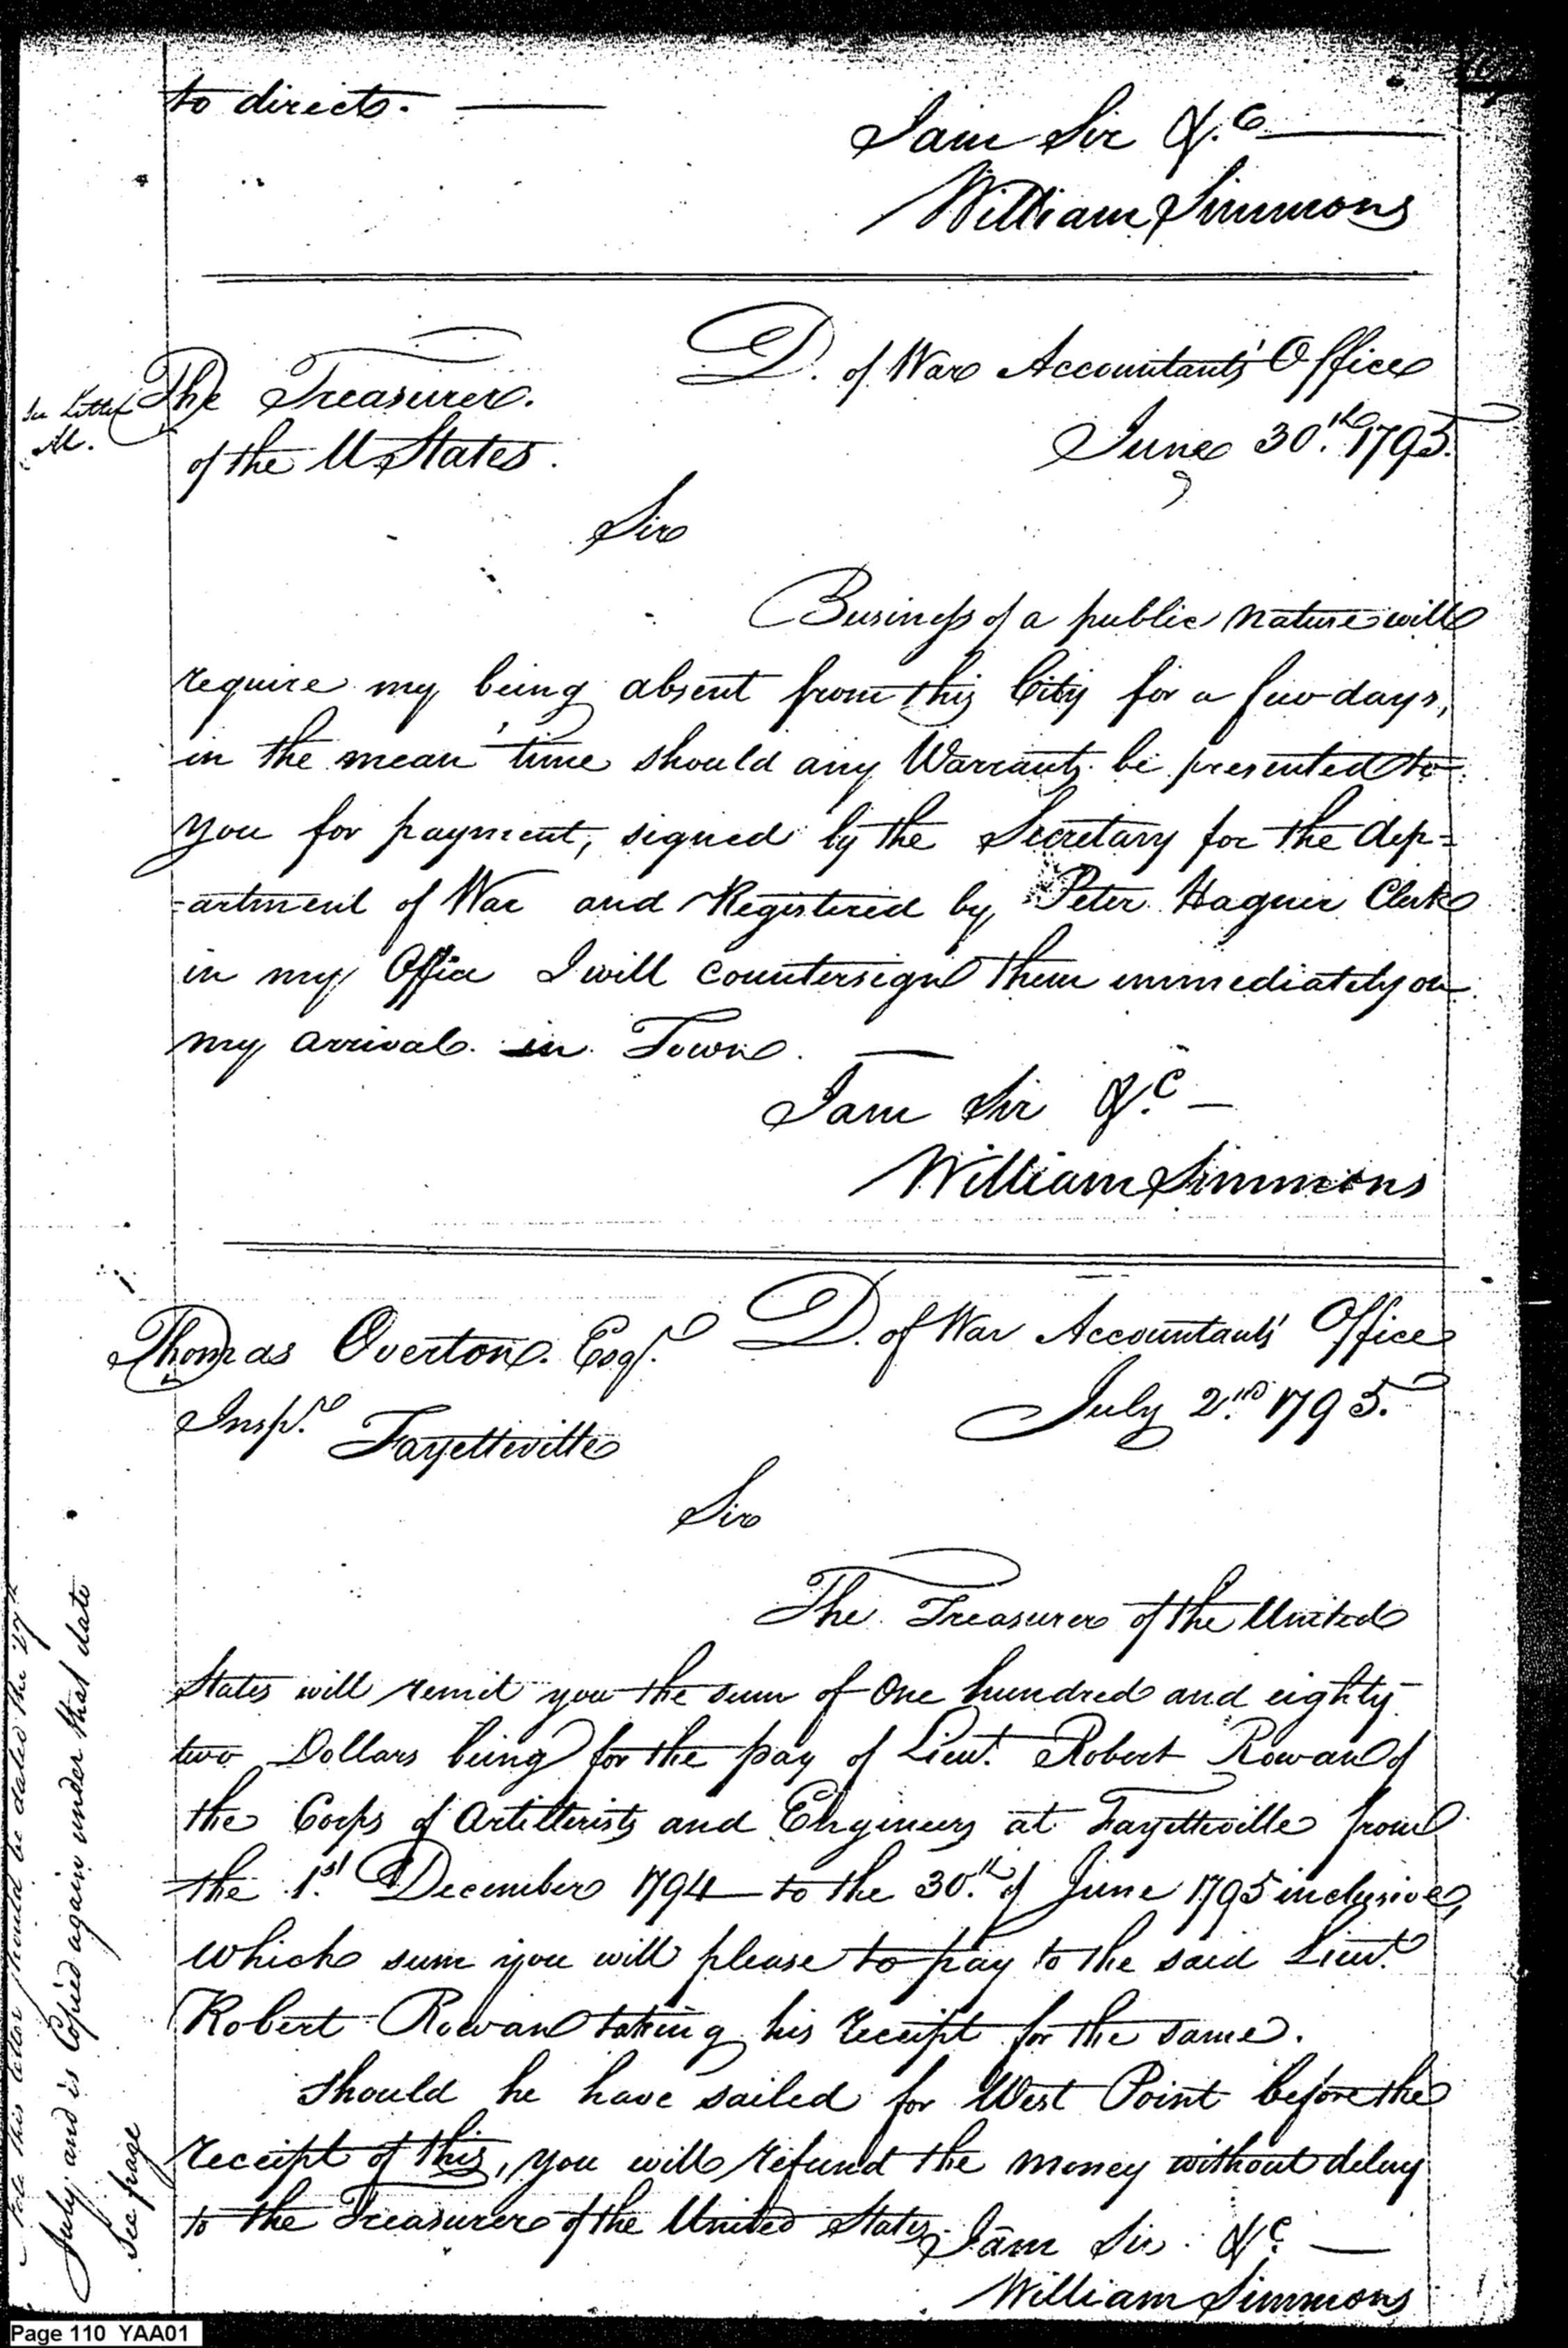 to direct.
I am Sir &.c
William Simmons
D. of War Accountants' Office
June 30.th 1795.
See Letter
The Treasurer.
of the U States.
Sir
Business of a public nature will
require my being absent from this City for a few days,
in the mean time should any Warrants be presented to
you for payment, signed by the Secretary for the dep=
=artment of War and Registered by Peter Hagner Clerk
in my Office I will countersign them immediately on
my arrival in Town.
I am Sir &.c
William Simmons
Thomas Overton. Esqr.
D. of War Accountants' Office
Inspr. Fayetteville
July 2.nd 1795.
Sir
The Treasurer of the United
States will remit you the sum of One hundred and eighty
two Dollars being for the pay of Lieut. Robert Rowan of
the Corps of Artillerists and Engineers at Fayetteville from
the 1.st December 1794 to the 30.th of June 1795 inclusive,
which sum you will please to pay to the said Lieut.
Robert Rowan taking his receipt for the same.
Should he have sailed for West Point before the
receipt of this, you will refund the money without delay
to the Treasurer of the United States.
I am Sir. &.c
William Simmons
Note this letter should be dated the 27th
July and is Copied again under that date
See page
Page 110 YAA01